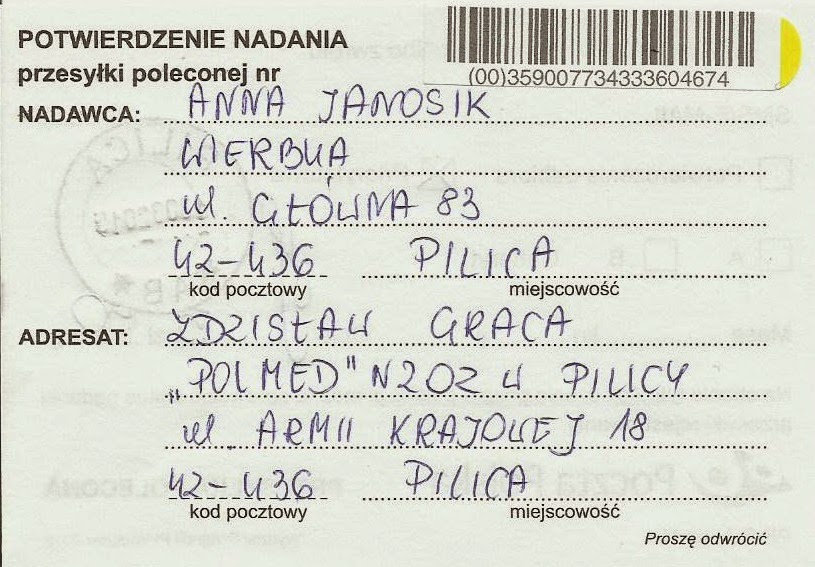 POTWIERDZENIE NADANIA
przesyłki poleconej nr
(00)359007734333604674
NADAWCA: ANNA JANOSIK
WIERBKA
ul. GŁÓWNA 83
42-436 PILICA
kod pocztowy miejscowość
ADRESAT: ZDZISŁAW GRACA
„POLMED" NZOZ W PILICY
ul. ARMII KRAJOWEJ 18
42-436 PILICA
kod pocztowy miejscowość
Proszę odwrócić